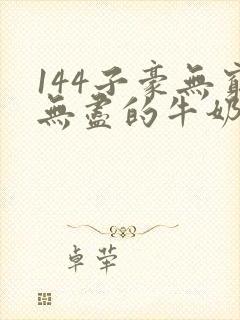 144子豪無窮
無盡的牛奶
卓犖